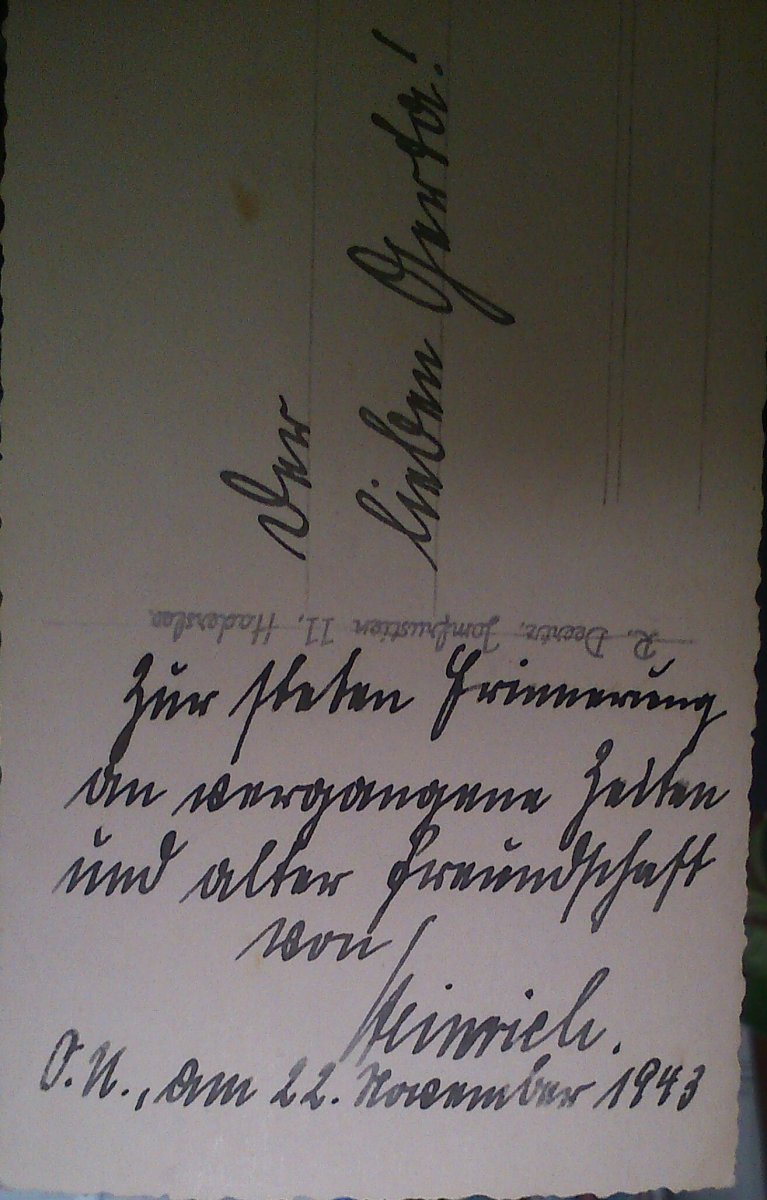 Der
lieben Gerta!
R. Deertz, Jomfrustien 11, Haderslev
Zur steten Erinnerung
an vergangene Zeiten
und alter Freundschaft
von
Heinrich.
O.U., am 22. November 1943